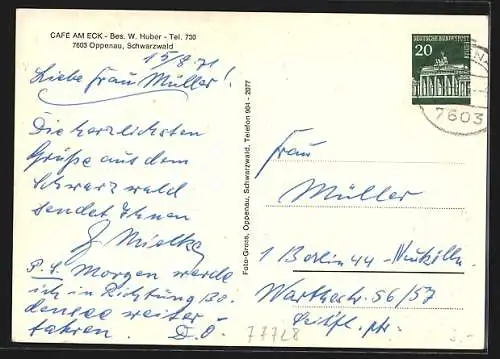 CAFE AM ECK - Bes. W. Huber - Tel. 730
7603 Oppenau, Schwarzwald
15/8 71
Liebe Frau Müller!
Die herzlichsten
Grüße aus dem
Schwarzwald
sendet Ihnen
Mielke
P.S. Morgen werde
ich in Richtung Bo-
densee weiter-
fahren. D.O.
Foto-Grote, Oppenau, Schwarzwald, Telefon 904 - 2077
DEUTSCHE BUNDESPOST
20
7603
Frau
Müller
1 Berlin 44 - Neukölln
Warthestr. 56/57
77728